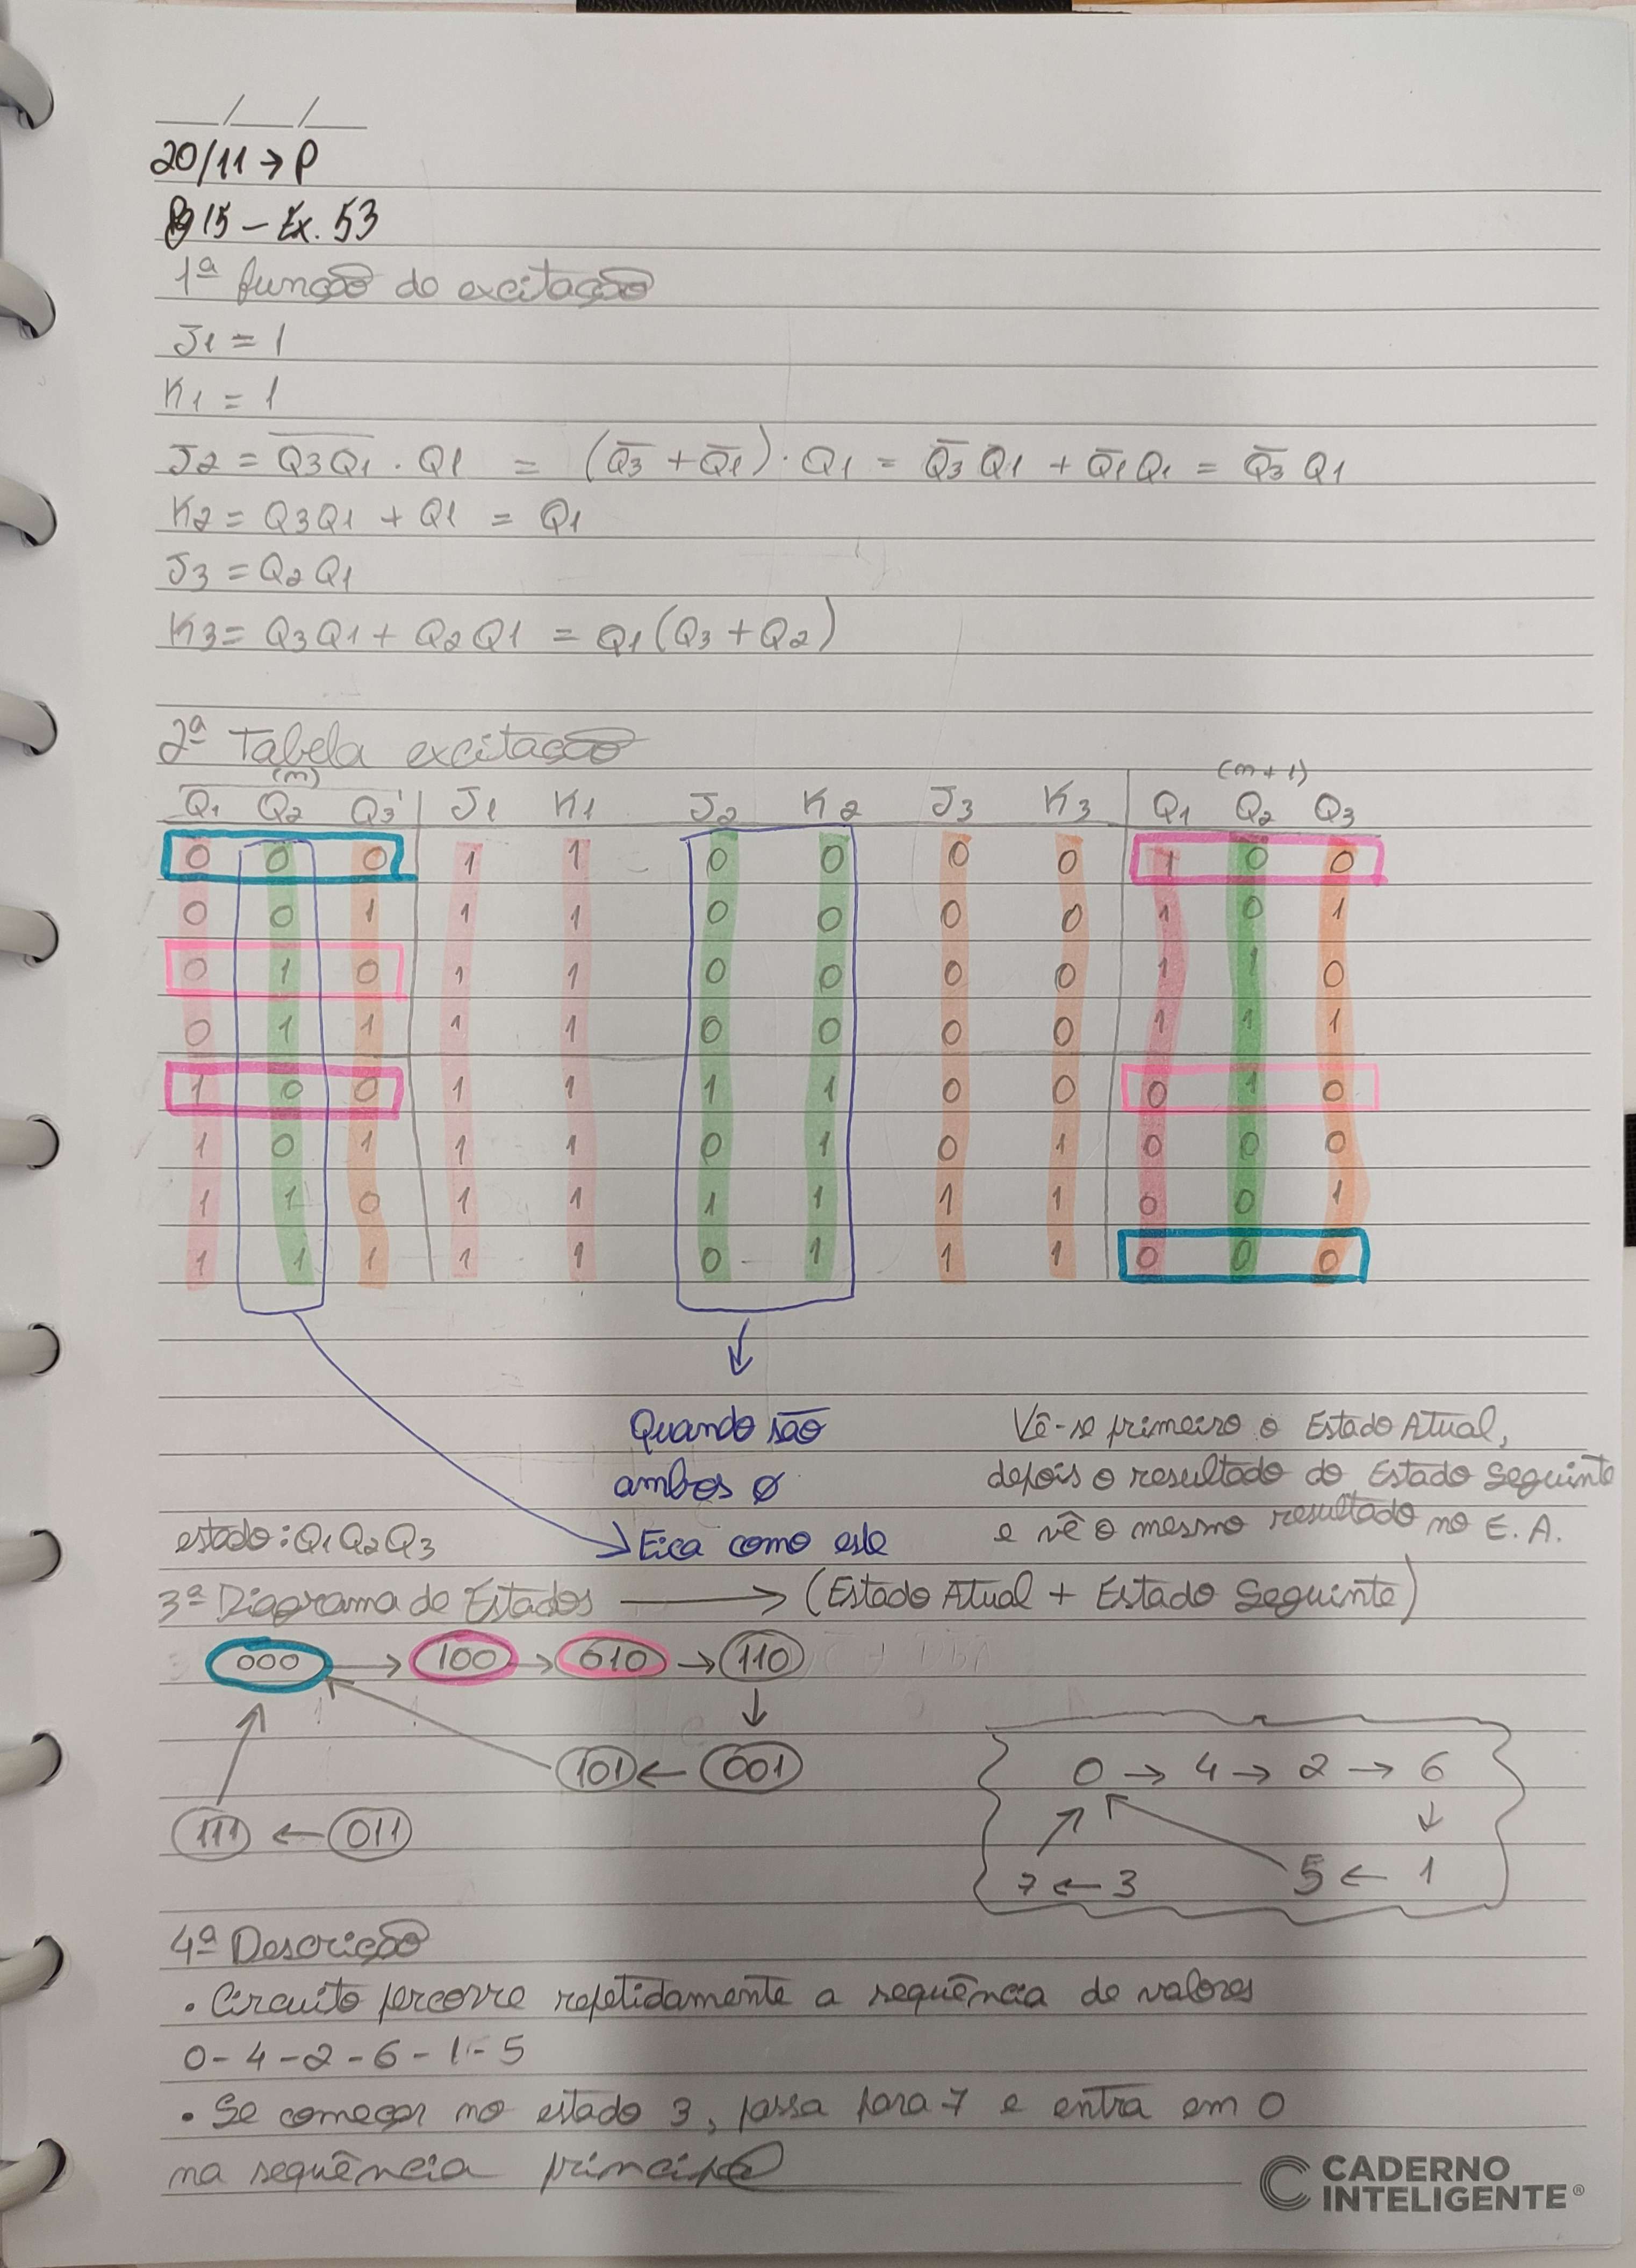 __/__/__
20/11 → P
P15 - Ex. 53
1ª função de excitação
J1 = 1
K1 = 1
J2 = \overline{Q3Q1} . Q1 = (\overline{Q3} + \overline{Q1}) . Q1 = \overline{Q3} Q1 + \overline{Q1} Q1 = \overline{Q3} Q1
K2 = Q3Q1 + Q1 = Q1
J3 = Q2 Q1
K3 = Q3Q1 + Q2Q1 = Q1 (Q3 + Q2)
2ª Tabela excitação
(m) (m + 1)
Q1 Q2 Q3 J1 K1 J2 K2 J3 K3 Q1 Q2 Q3
0 0 0 1 1 0 0 0 0 1 0 0
0 0 1 1 1 0 0 0 0 1 0 1
0 1 0 1 1 0 0 0 0 1 1 0
0 1 1 1 1 0 0 0 0 1 1 1
1 0 0 1 1 1 1 0 0 0 1 0
1 0 1 1 1 0 1 0 1 0 0 0
1 1 0 1 1 1 1 1 1 0 0 1
1 1 1 1 1 0 1 1 1 0 0 0
Quando são
ambos ø
Fica como este
Vê-se primeiro o Estado Atual,
depois o resultado do Estado Seguinte
e vê o mesmo resultado no E. A.
estado: Q1 Q2 Q3
3ª Diagrama de Estados → (Estado Atual + Estado Seguinte)
000 → 100 → 010 → 110
↓
101 ← 001
111 ← 011
0 → 4 → 2 → 6
↓
7 ← 3 5 ← 1
4ª Descrição
• Circuito percorre repetidamente a sequência de valores
0 - 4 - 2 - 6 - 1 - 5
• Se começar no estado 3, passa para 7 e entra em 0
na sequência principal
CADERNO
INTELIGENTE®